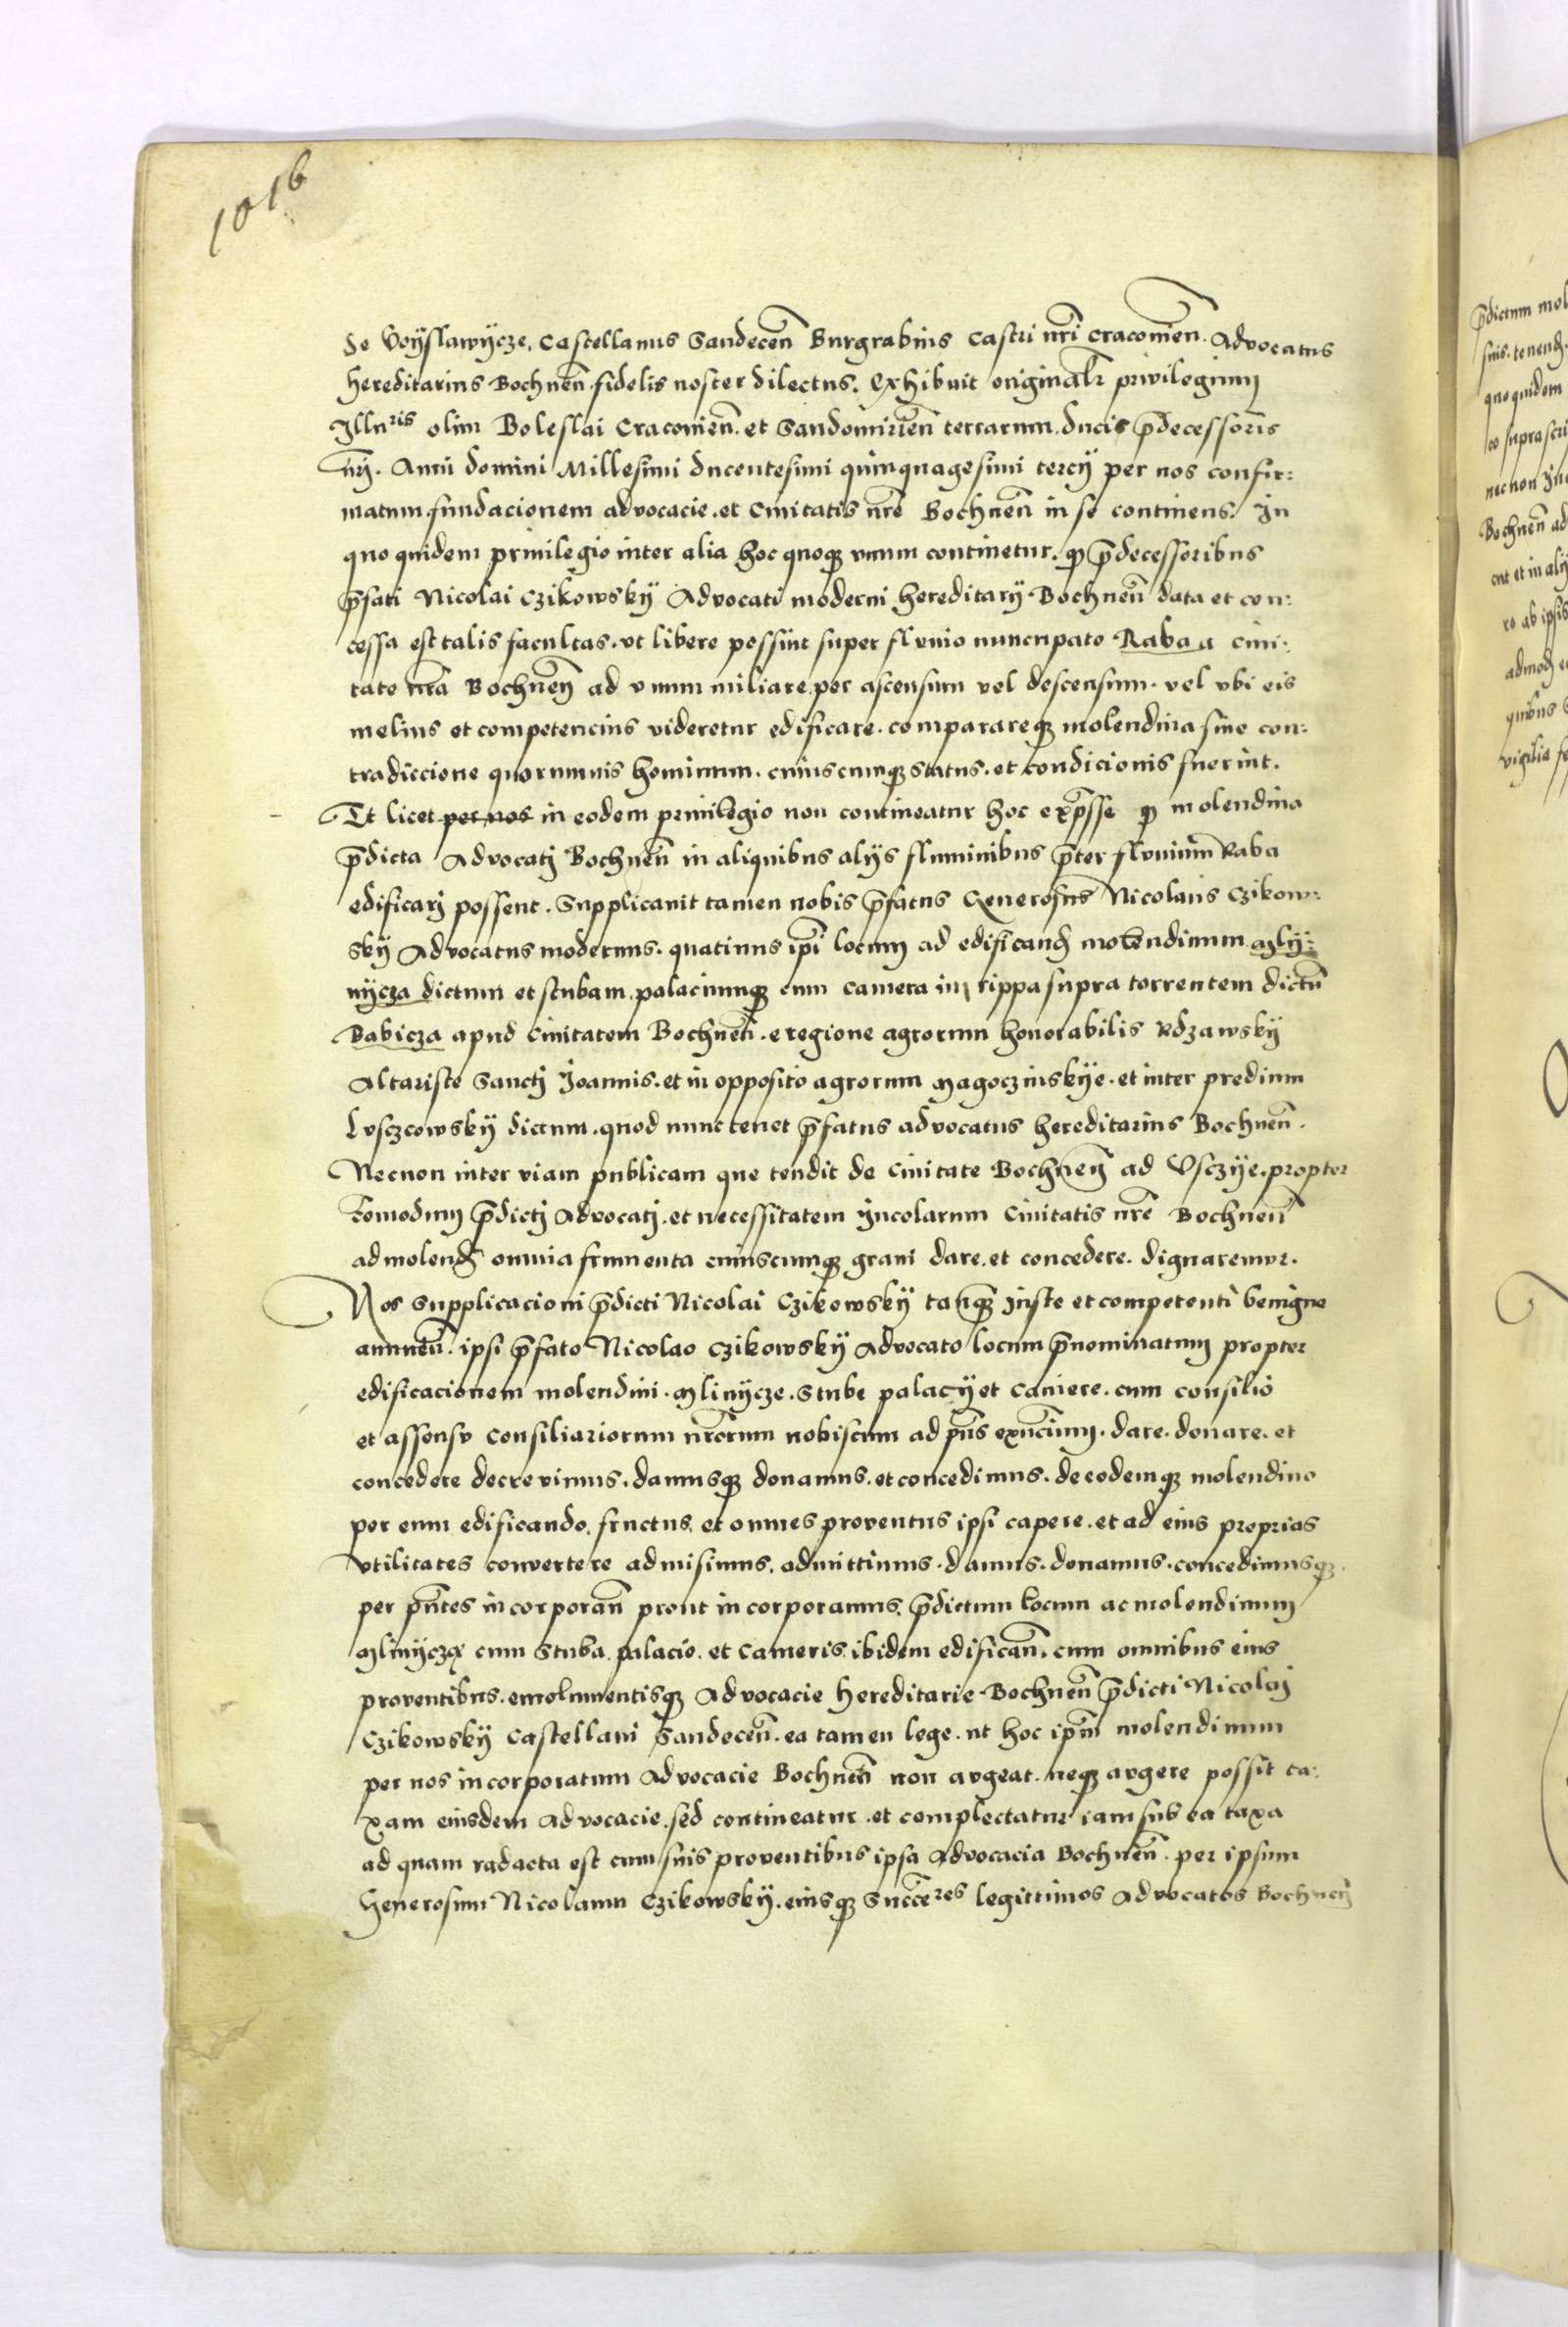 101b
de Voyslawycze, Castellanus Sandecen̄ Burgrabius Castri nr̄i Cracouien̄. Advocatus
hereditarius Bochnen̄. fidelis noster dilectus. Exhibuit originale privilegium
Illuris olim Boleslai Cracouien̄. et Sandomirien̄ terrarum. ducis p̄decessoris
nr̄j. Anni domini Millesimi ducentesimi quinquagesimi tercij per nos confir:
matum. fundacionem advocacie. et Ciuitatis nr̄e Bochnen̄ in se continens. In
quo quidem priuilegio inter alia hoc quoqꝫ vnum continetur. ꝙ p̄decessoribus
p̄fati Nicolai Czikowskÿ Advocati moderni hereditarij Bochnen̄ data et con:
cessa est talis facultas. vt libere possint super fluuio nuncupato Raba a Ciui:
tate nr̄a Bochnen̄ ad vnum miliare. per ascensum vel descensum. vel vbi eis
melius et competencius videretur edificare. comparareqꝫ molendina sine con:
tradiccione quorumuis hominum. cuiuscumqꝫ status. et condicionis fuerint.
Et licet per nos in eodem priuilegio non contineatur hoc exp̄sse ꝙ molendina
p̄dicta Advocatj Bochnen̄ in aliquibus alijs fluminibus p̄ter fluuium Raba
edificarj possent. Supplicauit tamen nobis p̄fatus Generosus Nicolaus Czikow:
skÿ Advocatus modernus. quatinus ip̄i locum ad edificand̄ molendinum Mlÿ:
nÿcza dictum et stubam. palaciumqꝫ cum camera in rippa supra torrentem dictū
Babicza apud Ciuitatem Bochnen̄. e regione agrorum honorabilis Rdzawskÿ
Altariste Sanctj Joannis. et in opposito agrorum Magoczinskÿe. et inter predium
Lvsczowskÿ dictum. quod nunc tenet p̄fatus advocatus hereditarius Bochnen̄.
Necnon inter viam publicam que tendit de Ciuitate Bochnen̄ ad Vsczÿe. propter
comodum p̄dictj Advocatj. et necessitatem Incolarum Ciuitatis nr̄e Bochnen̄
ad molend̄ omnia frumenta cuiuscumqꝫ grani dare. et concedere. dignaremur.
Nos supplicacioni p̄dicti Nicolai Czikowskÿ tanqꝫ Iuste et competenti benigne
annuen̄. ipsi p̄fato Nicolao Czikowskÿ Advocato locum p̄nominatum propter
edificacionem molendini. Mlinÿcze. Stube palacij et Camere. cum consilio
et assensu Consiliariorum nr̄orum nobiscum ad pn̄s exn̄cium. dare. donare. et
concedere decreuimus. damusqꝫ donamus. et concedimus. de eodemqꝫ molendino
per eum edificando. fructus. et omnes proventus ipsi capere. et ad eius proprias
vtilitates convertere admisimus. admittimus. damus. donamus. concedimusqꝫ.
per pn̄tes incorporan̄ prout incorporamus. p̄dictum locum ac molendinum
Mlinÿcza cum Stuba. palacio. et Cameris. ibidem edifican̄. cum omnibus eius
proventibus. emolumentisqꝫ Advocacie hereditarie Bochnen̄ p̄dicti Nicolaj
Czikowskÿ Castellani Sandecen̄. ea tamen lege. ut hoc ip̄m molendinum
per nos incorporatum Advocacie Bochnen̄ non avgeat. neqꝫ avgere possit ta:
xam eiusdem Advocacie. sed contineatur. et complectatur iam sub ea taxa
ad quam radacta est cum suis proventibus ipsa Advocacia Bochnen̄. per ipsum
Generosum Nicolaum Czikowskÿ. eiusqꝫ Succeres legittimos Advocatos Bochnen̄